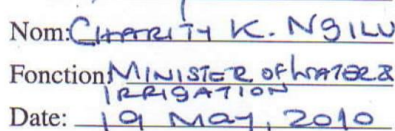 Nom: CHARITY K. NGILU
Fonction MINISTER OF WATER &
IRRIGATION
Date: 19 May, 2010